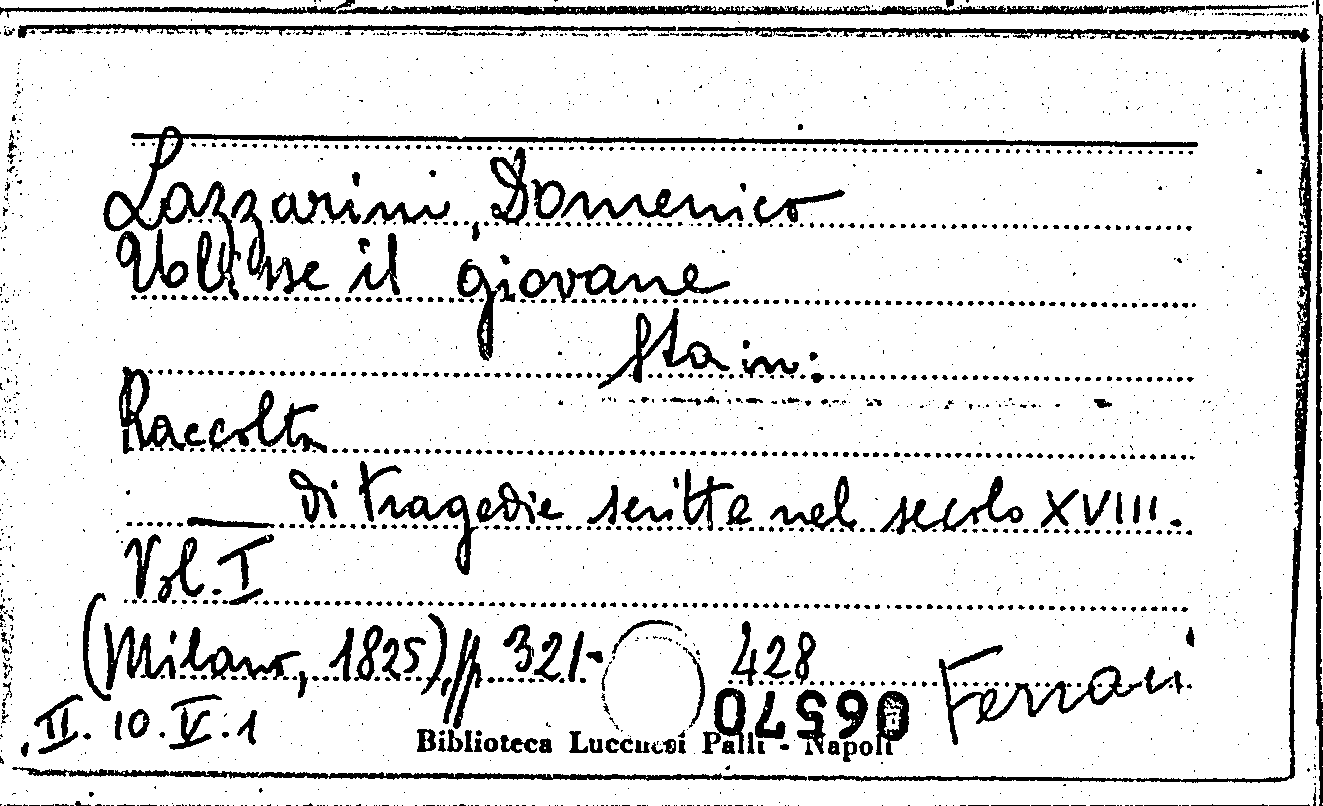 Lazzarini, Domenico
Ulisse il giovane
Sta in:
Raccolta
___ di tragedie scritte nel secolo XVIII.
Vol. I
(Milano, 1825), pp. 321-428
II. 10. V. 1
06570
Ferrari
Biblioteca Lucchesi Palli - Napoli